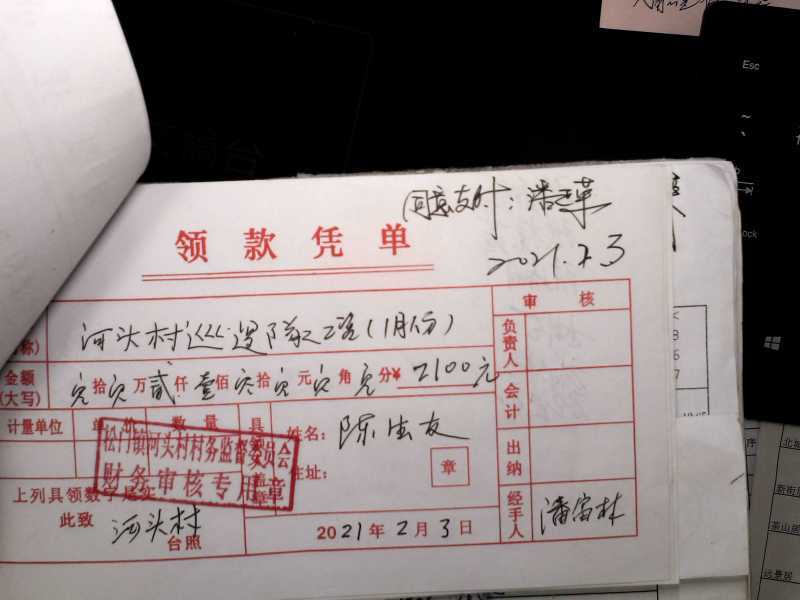 同意支付：潘
2021.2.3
领款凭单
审核
河头村巡逻队工资(1月份)
称)
负责人
金额
(大写)
拾 万贰仟壹佰 拾 元 角 分¥2100元
会计
计量单位 单价 数量
姓名：陈生友
松门镇河头村村务监督委员会
财务审核专用章
住址：
章
出纳
上列具领数字是实
此致 河头村 台照
2021年2月3日
经手人 潘富林
Esc